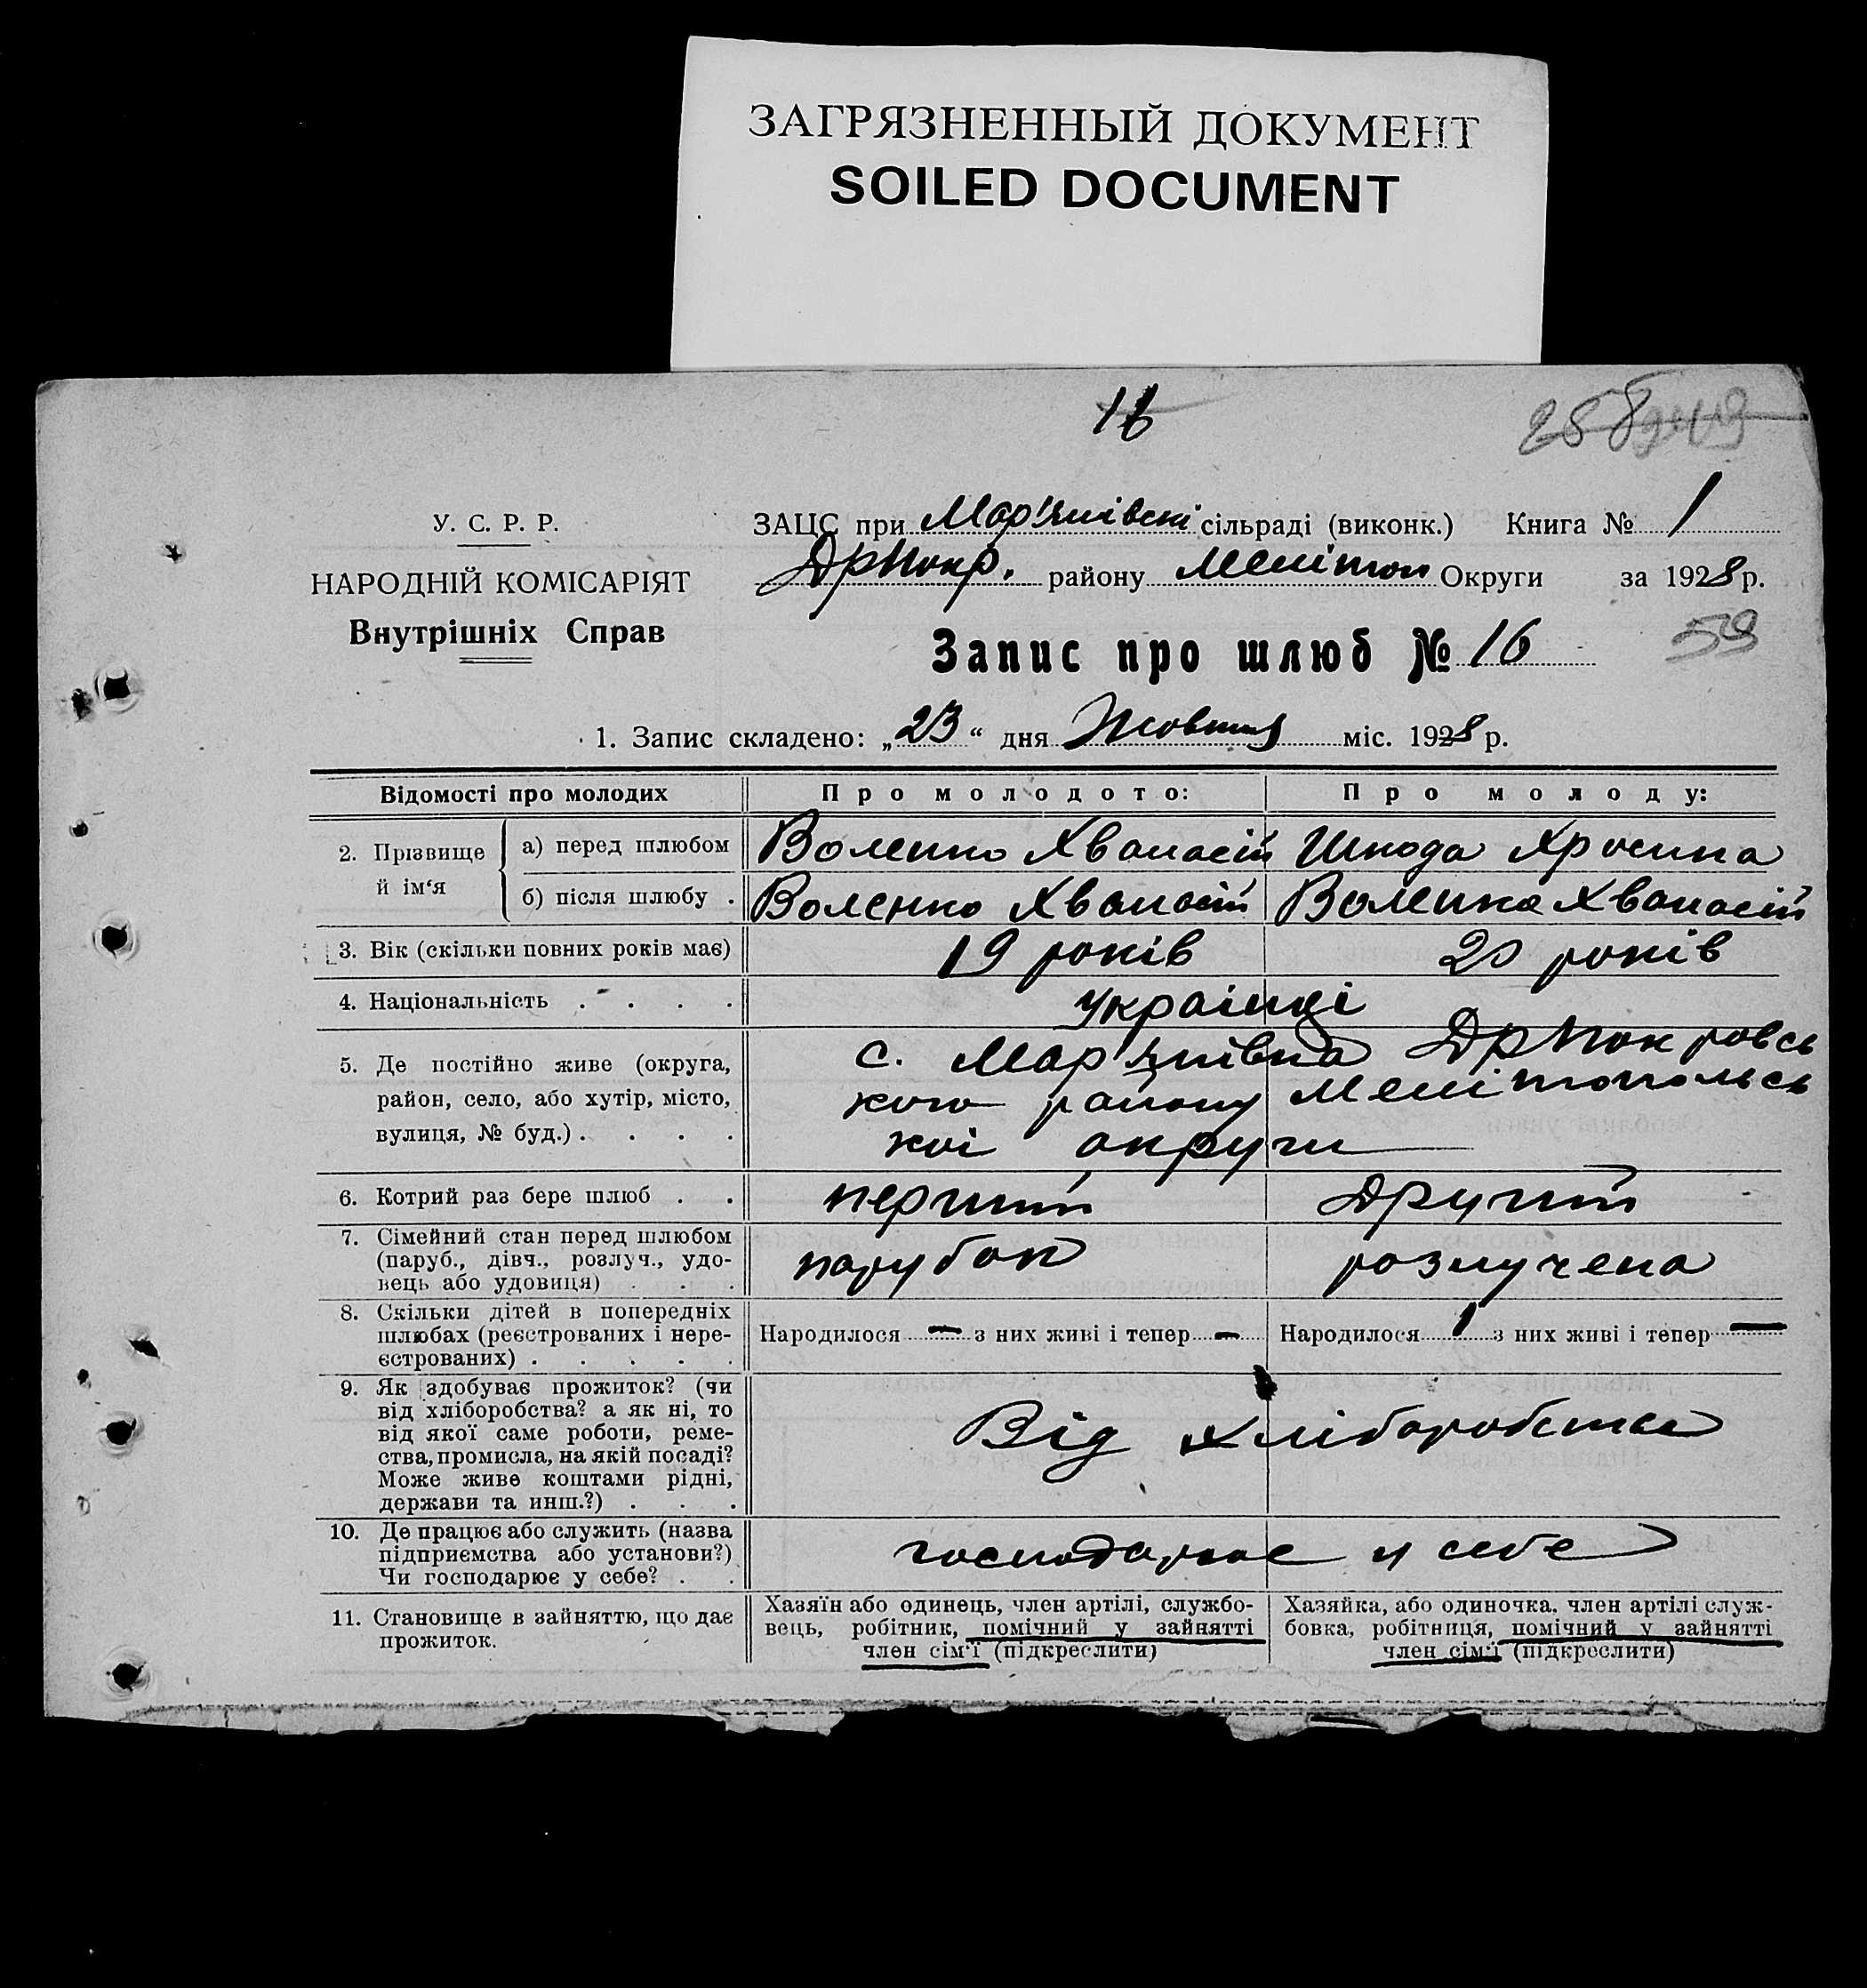 ЗАГРЯЗНЕННЫЙ ДОКУМЕНТ
SOILED DOCUMENT
16
У. С. Р. Р.
НАРОДНІЙ КОМІСАРІЯТ
Внутрішніх Справ
ЗАЦС при Мар'янівскі сільраді (виконк.) Книга № 1
ДрПокр. району Мелітоп Округи за 1928 р.
Запис про шлюб № 16
59
1. Запис складено: „23“ дня Жовтня міс. 1928 р.
Відомості про молодих
Про молодого:
Про молоду:
2. Прізвище й ім‘я
а) перед шлюбом
Воленко Хванасій
Шкода Хросина
б) після шлюбу .
Воленко Хванасій
Воленко Хванасій
3. Вік (скільки повних років має)
19 років
20 років
4. Національність . . . .
українці
5. Де постійно живе (округа,
район, село, або хутір, місто,
вулиця, № буд.) . . . .
с. Мар'янівка ДрПокровсь
кого району Мелітопольсь
кої округи
6. Котрий раз бере шлюб . .
перший
Другий
7. Сімейний стан перед шлюбом
(паруб., дівч., розлуч., удо-
вець або удовиця) . . .
парубок
розлучена
8. Скільки дітей в попередніх
шлюбах (реєстрованих і нере-
єстрованих) . . . . .
Народилося — з них живі і тепер —
Народилося 1 з них живі і тепер —
9. Як здобуває прожиток? (чи
від хліборобства? а як ні, то
від якої саме роботи, реме-
ства, промисла, на якій посаді?
Може живе коштами рідні,
держави та инш.?) . . .
Від хліборобства
10. Де працює або служить (назва
підприємства або установи?)
Чи господарює у себе? . .
господарює у себе
11. Становище в зайняттю, що дає
прожиток.
Хазяїн або одинець, член артілі, службо-
вець, робітник, помічний у зайнятті
член сім'ї (підкреслити)
Хазяйка, або одиночка. член артілі служ-
бовка, робітниця, помічний у зайнятті
член сім'ї (підкреслити)